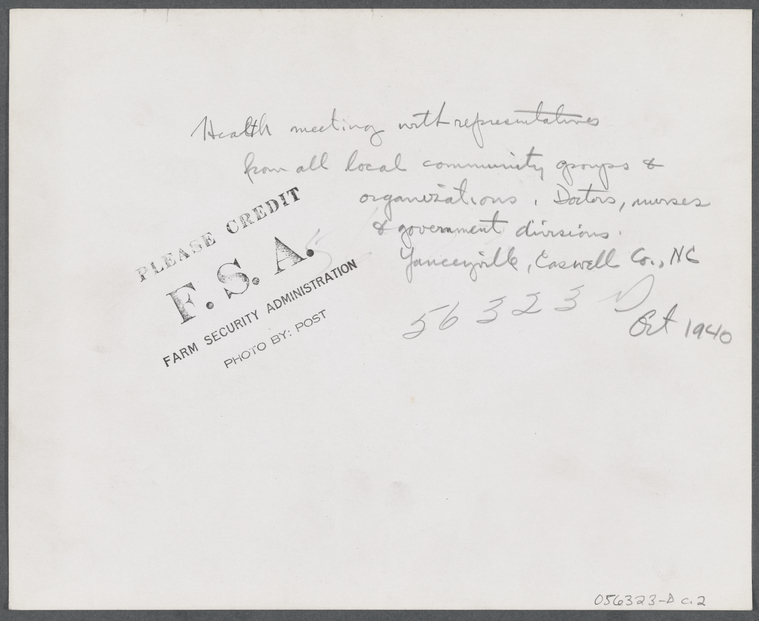 Health meeting with representatives
from all local community groups &
organizations. Doctors, nurses
& government divisions.
Yanceyville, Caswell Co., NC
PLEASE CREDIT
F. S. A.
FARM SECURITY ADMINISTRATION
PHOTO BY: POST
56323 D
Oct 1940
056323-D c.2